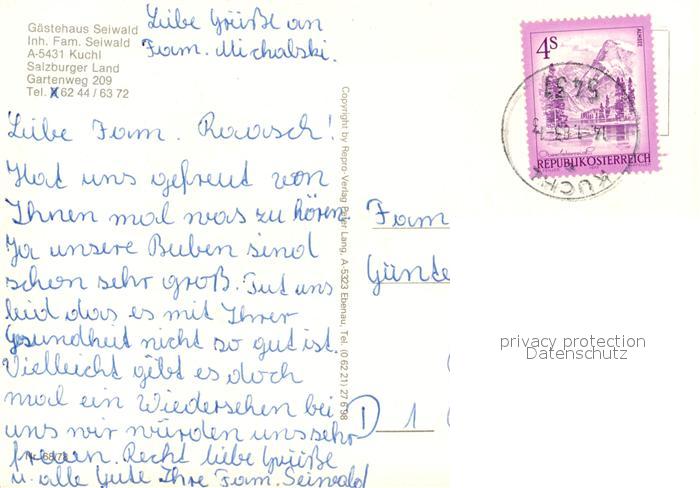 Liebe Grüße an
Fam. Michalski.
Gästehaus Seiwald
Inh. Fam. Seiwald
A-5431 Kuchl
Salzburger Land
Gartenweg 209
Tel. 62 44 / 63 72
Liebe Fam. Raasch!
Hat uns gefreut von
Ihnen mal was zu hören.
Ja unsere Buben sind
schon sehr groß. Tut uns
leid das es mit Ihrer
Gesundheit nicht so gut ist.
Vielleicht gibt es doch
mal ein Wiedersehen bei
uns wir würden uns sehr
freuen. Recht liebe Grüße
u. alle Gute Ihre Fam. Seiwald
Copyright by Repro-Verlag Peter Lang, A-5323 Ebenau, Tel. (0 62 21) 27 6 98
4S
ALMSEE
REPUBLIK ÖSTERREICH
5431
KUCHL
Fam
Günde
D 1
privacy protection
Datenschutz